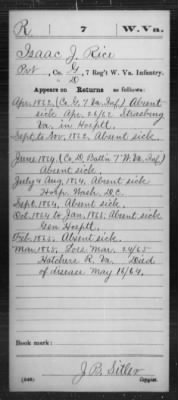 R 7 W. Va.
Isaac J. Rice
Pvt, Co. G/D, 7 Reg't W. Va. Infantry.
Appears on Returns as follows:
Apr. 1862, (Co. G, 7 Va. Inf.) Absent
sick Apr. 26/62 Strasburg
Va. in Hosptl.
Sept. to Nov. 1862, Absent sick.
June 1864 (Co. D, Batt'n 7 W. Va. Inf.)
Absent sick.
July & Aug. 1864, Absent sick
Hosp. Wash. D.C.
Sept. 1864, Absent sick.
Oct. 1864 to Jan. 1865, Absent sick
Gen. Hosptl.
Feb. 1865, Absent sick.
Mar. 1865, Loss Mar. 24/65
Hatchers R. Va. Died
of disease May 16/64.
Book mark:
J. B. Sitler
(546) Copyist.